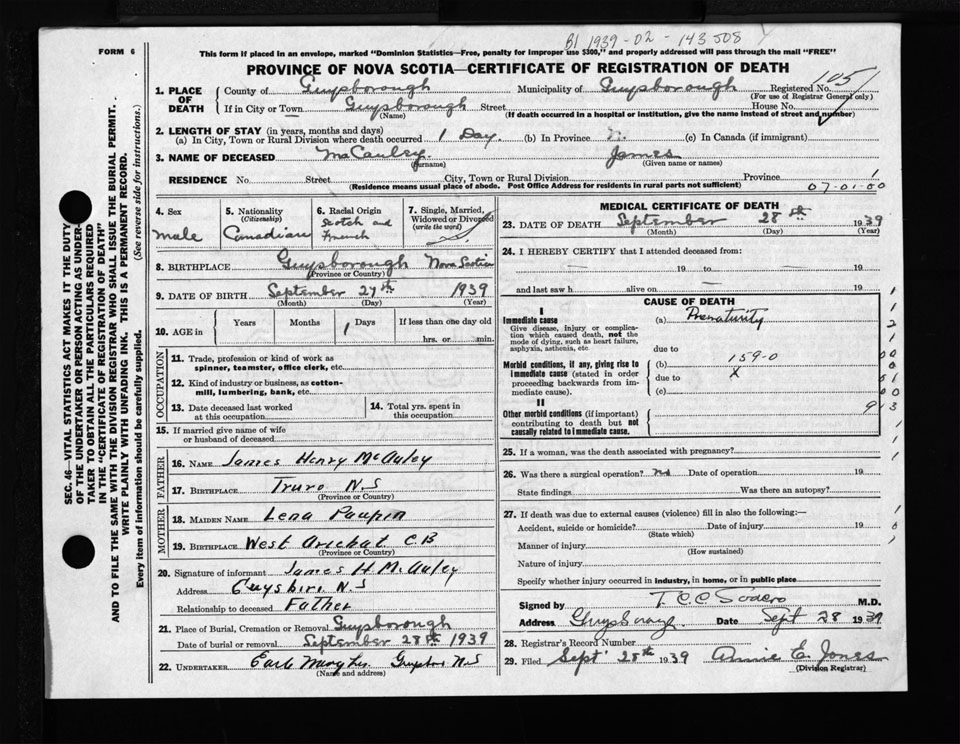 B1 1939-02-143508
FORM 6
This form if placed in an envelope, marked "Dominion Statistics—Free, penalty for improper use $300," and properly addressed will pass through the mail "FREE"
PROVINCE OF NOVA SCOTIA—CERTIFICATE OF REGISTRATION OF DEATH
1. PLACE OF DEATH
County of Guysborough Municipality of Guysborough Registered No. 1051
(For use of Registrar General only)
If in City or Town Guysborough Street House No.
(Name) (If death occurred in a hospital or institution, give the name instead of street and number)
2. LENGTH OF STAY (in years, months and days)
(a) In City, Town or Rural Division where death occurred 1 Day. (b) In Province (c) In Canada (if immigrant)
3. NAME OF DECEASED McCauley James
(Surname) (Given name or names)
RESIDENCE No. Street City, Town or Rural Division Province 1
(Residence means usual place of abode. Post Office Address for residents in rural parts not sufficient) 07-01-00
4. Sex
male
5. Nationality
(Citizenship)
Canadian
6. Racial Origin
Scotch and
French
7. Single, Married,
Widowed or Divorced
(write the word)
8. BIRTHPLACE Guysborough Nova Scotia
(Province or Country)
9. DATE OF BIRTH September 27th 1939
(Month) (Day) (Year)
10. AGE in Years Months 1 Days If less than one day old
hrs. or min.
OCCUPATION
11. Trade, profession or kind of work as
spinner, teamster, office clerk, etc.
12. Kind of industry or business, as cotton-
mill, lumbering, bank, etc.
13. Date deceased last worked
at this occupation
14. Total yrs. spent in
this occupation
15. If married give name of wife
or husband of deceased
FATHER
16. NAME James Henry McAuley
17. BIRTHPLACE Truro N.S
(Province or Country)
MOTHER
18. MAIDEN NAME Lena Paupin
19. BIRTHPLACE West Arichat C.B
(Province or Country)
20. Signature of informant James H McAuley
Address Guysboro N.S
Relationship to deceased Father
21. Place of Burial, Cremation or Removal Guysborough
Date of burial or removal September 28th 1939
22. UNDERTAKER Earle N.S
(Name and address)
MEDICAL CERTIFICATE OF DEATH
23. DATE OF DEATH September 28th 1939
(Month) (Day) (Year)
24. I HEREBY CERTIFY that I attended deceased from:
— 19 to — 19
and last saw h alive on — 19
CAUSE OF DEATH
I
Immediate cause (a) Prematurity
Give disease, injury or complica-
tion which caused death, not the
mode of dying, such as heart failure,
asphyxia, asthenia, etc.
due to
Morbid conditions, if any, giving rise to
immediate cause (stated in order
proceeding backwards from im-
mediate cause).
(b) 159-0
due to X
(c)
II
Other morbid conditions (if important)
contributing to death but not
causally related to immediate cause.
25. If a woman, was the death associated with pregnancy?
26. Was there a surgical operation? no Date of operation 19
State findings Was there an autopsy?
27. If death was due to external causes (violence) fill in also the following:—
Accident, suicide or homicide? Date of injury 19
(State which)
Manner of injury
(How sustained)
Nature of injury
Specify whether injury occurred in industry, in home, or in public place
Signed by T.C.C. Sodero M.D.
Address Guysborough Date Sept 28 1939
28. Registrar's Record Number
29. Filed Sept 28th 1939 Annie E. Jones
(Division Registrar)
SEC. 46—VITAL STATISTICS ACT MAKES IT THE DUTY
OF THE UNDERTAKER OR PERSON ACTING AS UNDER-
TAKER TO OBTAIN ALL THE PARTICULARS REQUIRED
IN THE "CERTIFICATE OF REGISTRATION OF DEATH"
AND TO FILE THE SAME WITH THE DIVISION REGISTRAR WHO SHALL ISSUE THE BURIAL PERMIT.
WRITE PLAINLY WITH UNFADING INK. THIS IS A PERMANENT RECORD.
Every item of information should be carefully supplied. (See reverse side for instructions.)